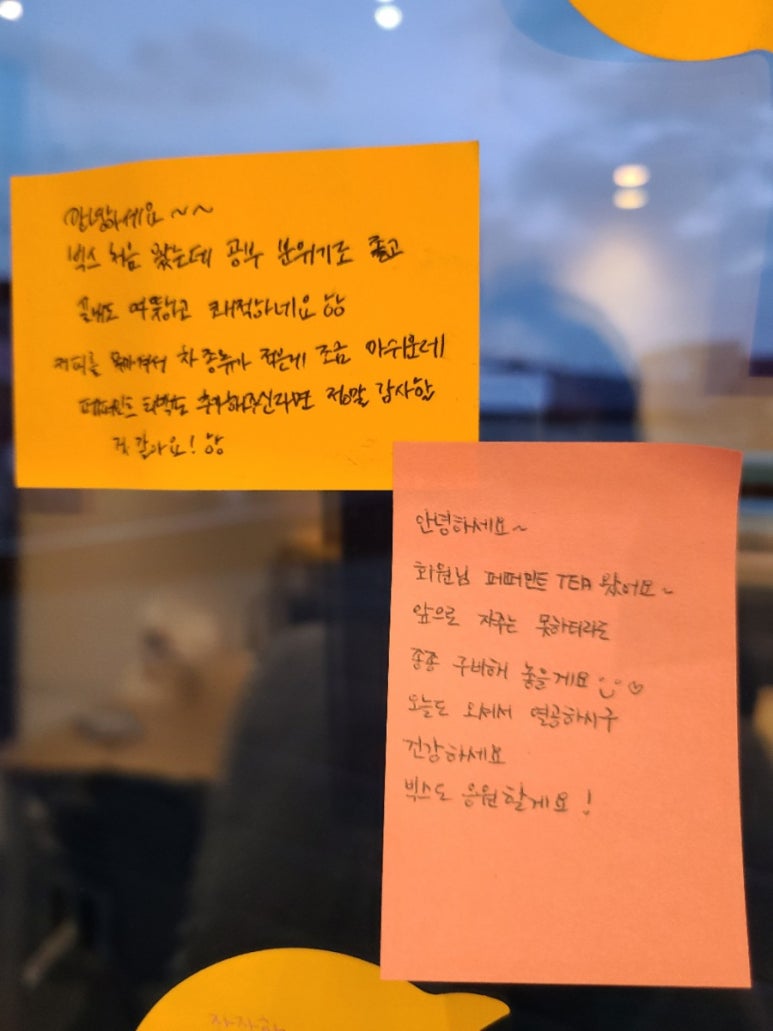 안녕하세요~~
빅스 처음 왔는데 공부 분위기도 좋고
실내도 따뜻하고 쾌적하네요 ㅎㅎ
커피를 못마셔서 차 종류가 적은게 조금 아쉬운데
페퍼민트 티백도 추가해주신다면 정말 감사할
것 같아요! ㅎㅎ
안녕하세요~
회원님 페퍼민트 TEA 왔어요~
앞으로 자주는 못하더라도
종종 구비해 놓을게요
오늘도 오셔서 열공하시구
건강하세요
빅스도 응원할게요!